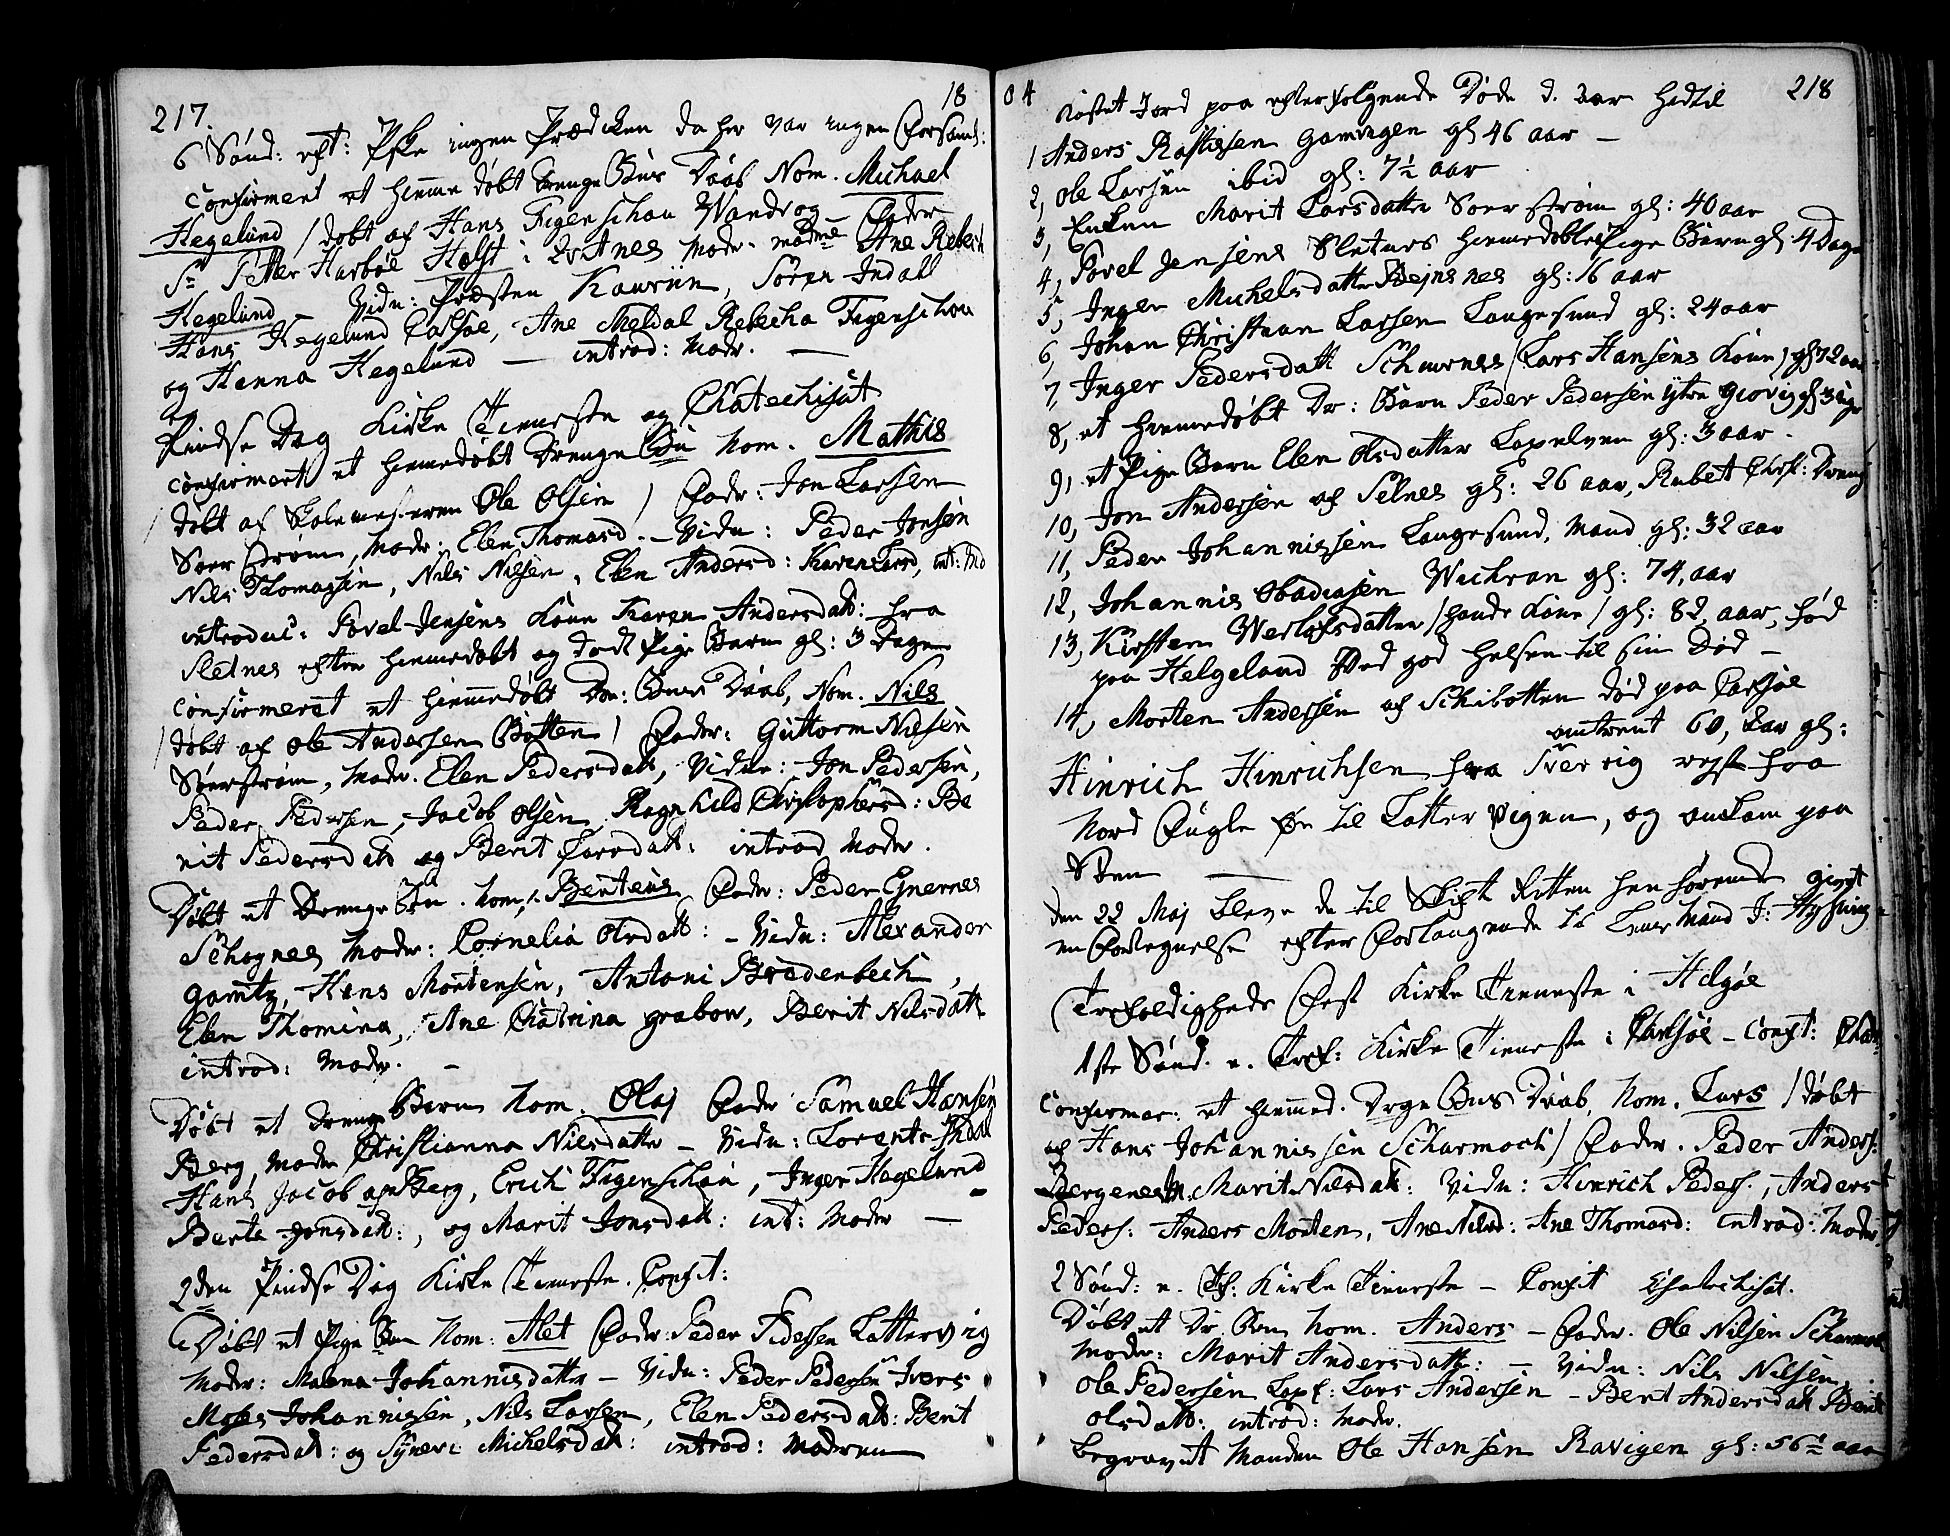 217.
18
6 Sønd: eft: Pske ingen Prædicken da her var ingen Forsaml:
Confirmert et hiemme døbt Drenge Bns Daab Nom. Michael
Hegelund / døbt af Hans Figenschau Wandvog Fader
Sr. Petter Harboe Holst i Qvitnes Modr. Madme Ane Rebech
Hegelund — Vidn: Præsten Kauriin, Søren Indall
Hans Hegelund Carlsøe, Ane Meldal Rebecha Figenschou
og Hanna Hegelund — introd: Modr. —
Pindse Dag Kirke Tieneste og Chatechisat
Confirmert et hiemedøbt Drenge Bn Nom. Mathis
døbt af Skolemesteren Ole Olsen / Fadr: Jon Larsen
Soer Strøm, Modr: Elen Thomasd. — Vidn: Peder Jonsen
Nils Thomassen, Nils Nilsen, Elen Andersd: Karen Larsd, int: Md
introduc: Povel Jensens Kone Karen Andersdatt: fra
Sletnes efter hiemedøbt og død Pige Barn gl: 3 Dage
Confirmeret et hiemmedøbt Dr: Bns Daab, Nom. Nils
/ døbt af Ole Andersen Botten / Fadr: Guttorm Nilsen
Sørstrøm, Modr. Elen Pedersdatt, Vidne: Jon Pedersen,
Peder Pedersen, Jacob Olsen Ragnhild Christophersd: Be
rit Pedersdatt og Berit Larsdatt: introd Modr.
Døbt et Drenge Bn. Nom: Benteus Fadr: Peder Gnernes
Schognes Modr: Cornelia Olsdatt: — Vidn: Alexander
Gamtz, Hans Mortensen, Antoni Bradenbech,
Elen Thomina, Ane Chatrina Grabow, Berit Nilsdatt
introd: Modr. —
Døbt et Drenge Barn Nom. Olaj Fadr Samuel Hansen
Berg, Modr Christianna Nilsdatter — Vidn: Lorents Indal
Hans Jacob Berg, Erich Figenschau, Inger Hegelund
Berte Jonsdatt:, og Marit Jonsdatt: int: Modr —
2den Pindse Dag Kirke Tieneste. Confit:
Døbt et Pige Bn Nom: Alet Fadr: Peder Pedersen Lattervig
Modr: Malena Johannisdatter — Vidn: Peder Pedersen Ivers
Moses Johannissen, Nils Larsen, Elen Pedersdatt: Berit
Pedersdatt: og Synevi Michelsdatt: introd: Moderen
04
218
Kastet Jord paa efterfølgende Døde d. Aar hidtil
1 Anders Rasmissen Gamvigen gl 46 aar —
2, Ole Larsen ibid gl: 7½ aar
3, Enken Marit Larsdatter Soerstrøm gl: 40 aar
4, Povel Jensens Sletnes hiemedøbte Pige Barn gl 4 Dage
5, Inger Michelsdatter Rejnsnes gl: 16 aar
6, Johan Christian Larsen Langesund gl: 24 aar
7, Inger Pedersdatt Schiernes / Lars Hansens Kone / gl 72 aar
8, et hiemedøbt Dr: Barn Peder Pedersen ytre Giøvig gl 3 Uge
9, et Pige Barn Elen Olsdatter Lopelven gl: 3 aar.
10, Jon Andersen af Selnes gl: 26 aar, Rubet Chrst: Dreng
11, Peder Johannissen Langesund, Mand gl: 32 aar
12, Johannis Obadiasen Wachran gl: 74, aar
13, Kirsten Werlofsdatter / hands Kone / gl: 82, aar, fød
paa Helgeland Wed god Helsen til sin Død —
14, Morten Andersen af Schibotten død paa Carlsøe
omtrent 60, Aar gl:
Hinrich Hinrichsen fra Sverrig rejst fra
Nord Fugle Øe til Latter Vigen, og ankom paa
Støen —
den 22 Maj bleve de til Skift Retten henhørende givet
en Fortegnelse efter Forlangende til Lensmand J: Hysing
Trefoldigheds Fest Kirke Tieneste i Helgøe
1ste Sønd. e. Tref: Kirke Tieneste i Carlsøe — Conft: Chat:
Confirmer: et hiemed. Drge Bns Daab, Nom. Lars / døbt
af Hans Johannissen Scharmoch / Fadr. Peder Anders:
Bergenes M. Marit Nilsdatt: Vidn: Hinrich Peders., Anders
Peders: Anders Morten, Ane Nilsd: Ane Thomasd: introd: Modr
2 Sønd: e. Tf: Kirke Tieneste — Confit Chatechisat.
Døbt et Dr. Bn Nom. Anders — Fadr. Ole Nilsen Scharmoch
Modr: Marit Andersdatt: — Vidn: Nils Nilsen,
Ole Pedersen Lopel: Lars Andersen — Berit Andersdatt Berit
Olsdatt: introd: Modr.
Begravet Manden Ole Hansen Ravigen gl: 56½ aar